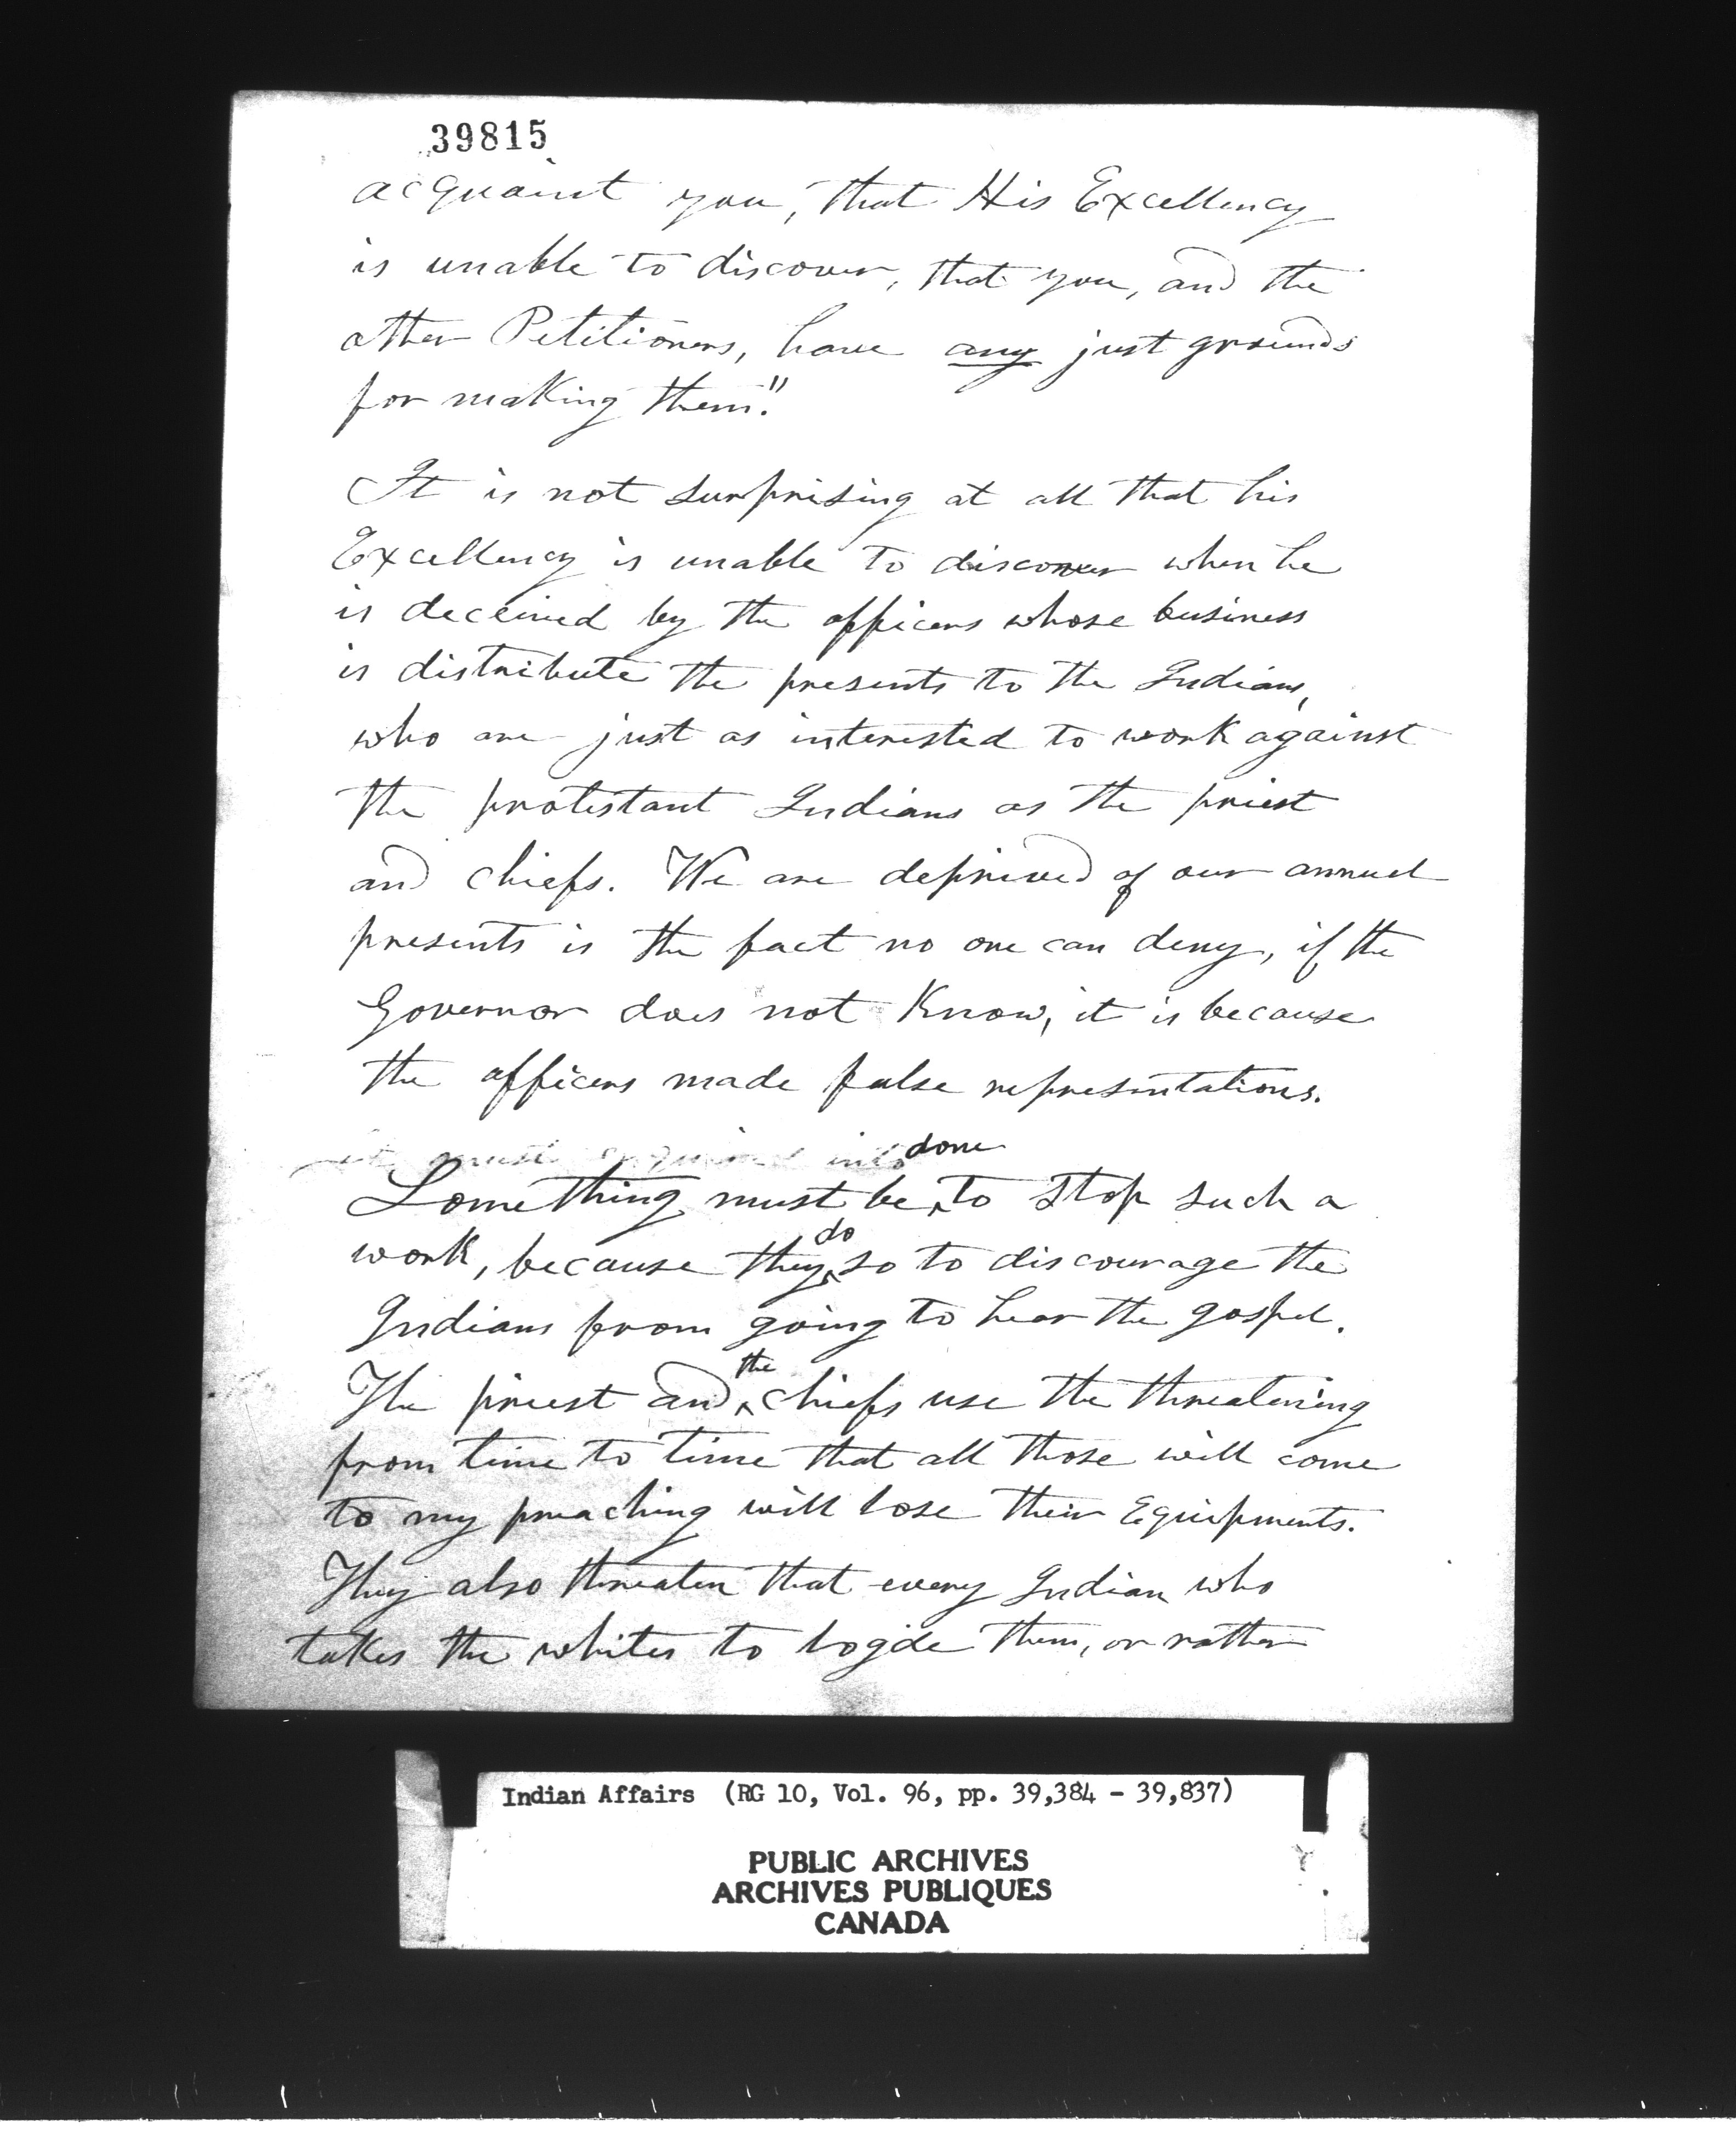 39815
acquaint you, that His Excellency
is unable to discover, that you, and the
other Petitioners, have any just grounds
for making them."
It is not surprising at all that his
Excellency is unable to discover when he
is deceived by the officers whose business
is distribute the presents to the Indians,
who are just as interested to work against
the protestant Indians as the priest
and chiefs. We are deprived of our annuel
presents is the fact no one can deny, if the
Governor does not Know, it is because
the officers made false representations.
it must into
done
Something must be to stop such a
do
work, because they so to discourage the
Indians from going to hear the gospel.
the
The priest and chiefs use the threatening
from time to time that all those will come
to my preaching will lose their Equipments.
They also threaten that every Indian who
takes the whites to logde them, or rather
Indian Affairs (RG 10, Vol. 96, pp. 39,384 - 39,837)
PUBLIC ARCHIVES
ARCHIVES PUBLIQUES
CANADA